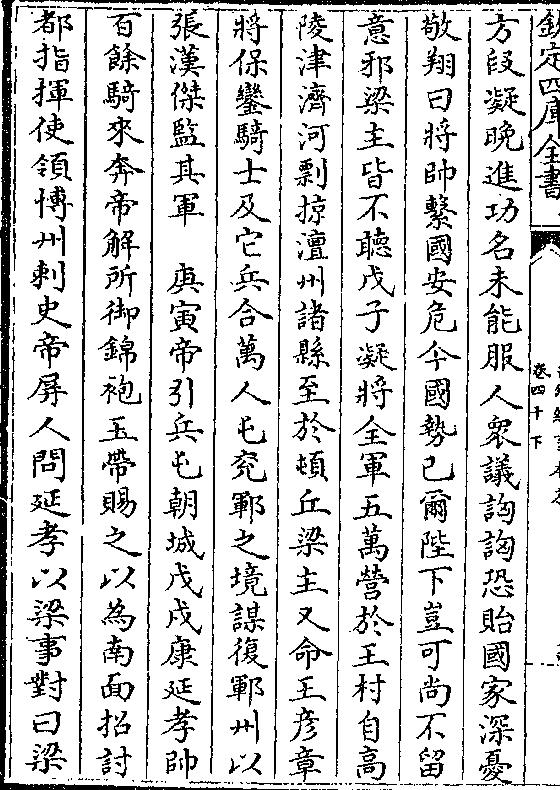 欽定四庫全書
卷四十下
方段凝晚進功名未能服人衆議詾詾恐貽國家深憂
敬翔曰將帥繫國安危今國勢已爾陛下豈可尚不留
意邪梁主皆不聽戊子凝將全軍五萬營於王村自高
陵津濟河剽掠澶州諸縣至於頓丘梁主又命王彦章
將保鑾騎士及它兵合萬人屯兖鄆之境謀復鄆州以
張漢傑監其軍　庚寅帝引兵屯朝城戊戌康延孝帥
百餘騎來奔帝解所御錦袍玉帶賜之以為南面招討
都指揮使領博州刺史帝屏人問延孝以梁事對曰梁